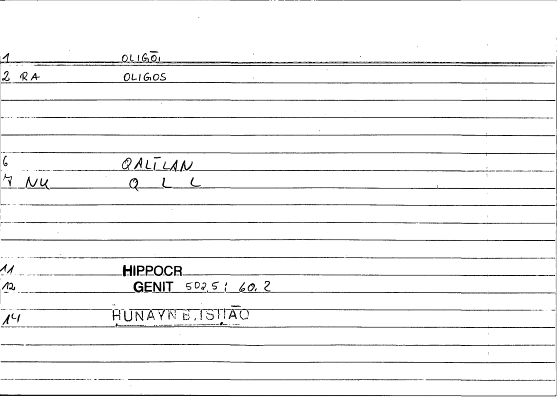 1 OLIGŌI
2 RA OLIGOS
6 QALĪLAN
7 NU Q L L
11 HIPPOCR
12 GENIT 502.5; 60.2
14 ḤUNAYN B. ISḤĀQ